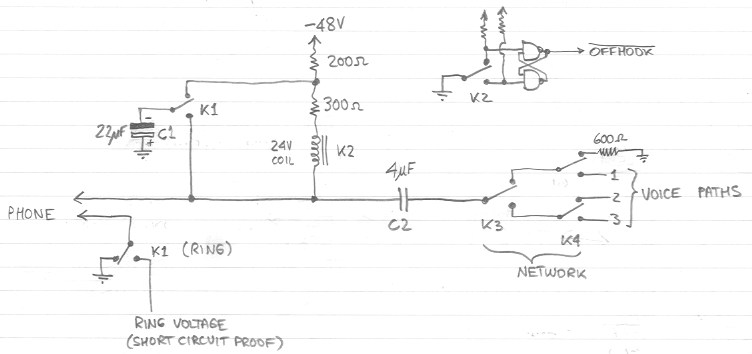 -48V
200Ω
OFFHOOK
K1
300Ω
K2
22µF
C1
24V
COIL
K2
4µF
600Ω
1
2
3
VOICE PATHS
PHONE
C2
K3
K4
K1 (RING)
NETWORK
RING VOLTAGE
(SHORT CIRCUIT PROOF)